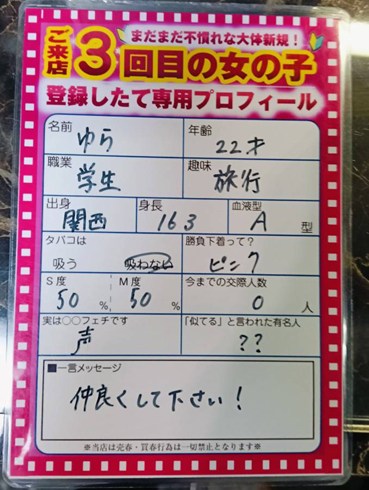 まだまだ不慣れな大体新規！
ご来店3回目の女の子
登録したて専用プロフィール
名前 ゆら 年齢 22才
職業 学生 趣味 旅行
出身 関西 身長 163 血液型 A 型
タバコは 吸う 吸わない 勝負下着って？ ピンク
S度 50% M度 50% 今までの交際人数 0人
実は○○フェチです 声 「似てる」と言われた有名人 ??
■一言メッセージ
仲良くして下さい！
※当店は売春・買春行為は一切禁止となります※